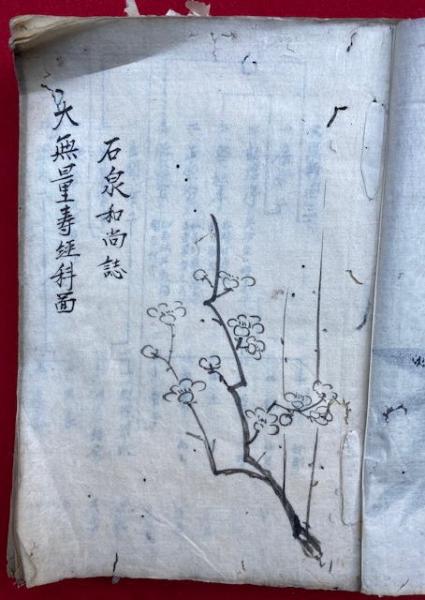 石泉和尚誌
大無量壽経科圖